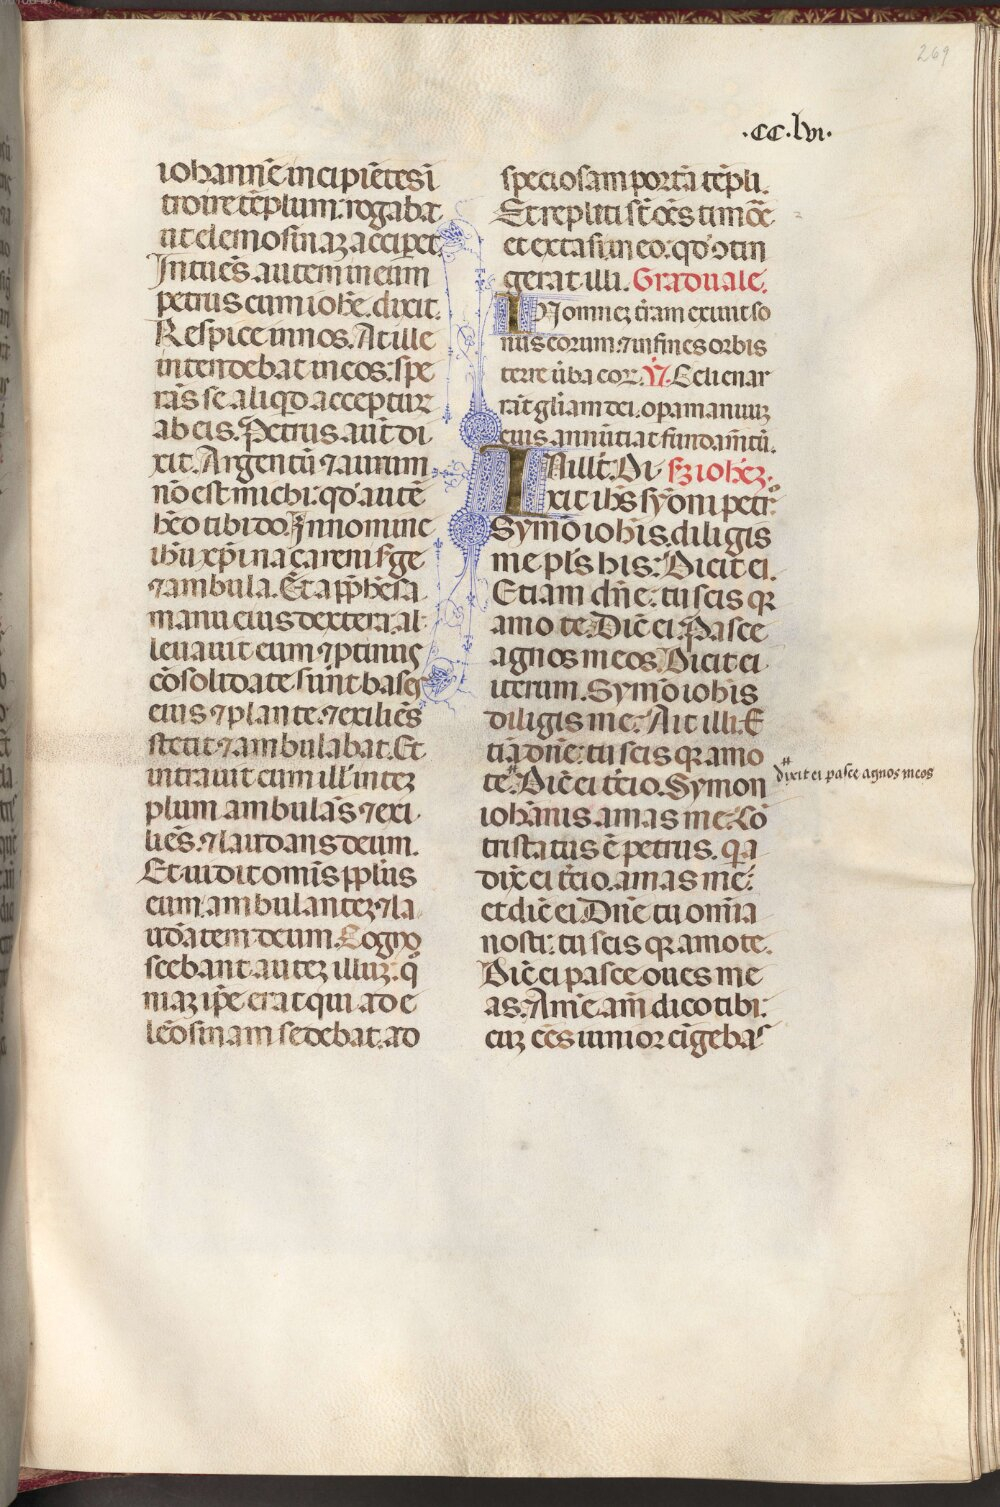 269
.CC.lvi.
iohannē incipiētes ī
troire tēplum: rogabat
ut elemosinaz acciperet
Intuēs autem in eum
petrus cum iohē. dixit.
Respice in nos. At ille
intendebat in eos: spe
rās se aliqd accepturz
ab eis. Petrus aut̄ di
xit. Argentū ⁊ aurum
nō est michi: qd̓ autē
hēo tibi do. In nomine
ihū xp̄i naçareni surge
⁊ ambula. Et app̄hēsa
manu eius dextera al
leuauit eum ⁊ ꝓtinus
cōsolidate sunt bases
eius ⁊ plante. ⁊ exiliēs
stetit ⁊ ambulabat. Et
intrauit cum ill' in tez
plum ambulās ⁊ exi
liēs. ⁊ laudans deum.
Et uidit omīs pp̄lus
eum ambulantez ⁊ la
udātem deum. Cogno
scebant autez illuz: qm̄
niaz ip̄e erat qui ad e
lēosinam sedebat. ad
speciosam portā tēpli.
Et repleti st̄ oēs timōe
et extasi in eo: qd̓ ↄtin
gerat illi. Graduale.
IN omnez trām exiuit so
nus eorum: ⁊ in fines orbis
terre ūba eoꝝ. ℣. Celi enar
rāt glīam dei. opa manuuz
eius annūtiat fundam̄tū.
IN illt̄. Di sz iohēz.
xit ihs sȳoni petrͦ.
Symō iohīs. diligis
me pl̄s his? Dicit ei.
Etiam dn̄e: tu scis qꝛ
amo te. Dic̄ ei. Pasce
agnos meos. Dicit ei
iterum. Symō iohīs
diligis me? Ait illi. E
tiā dn̄e: tu scis qꝛ amo
te. Dic̄ ei t̄cio. Symon
iohānis amas me? Cō
tristatus ē petrus. qꝛa
dix̄ ei t̄cio. amas me?
et dic̄ ei. Dn̄e tu om̄ia
nosti: tu scis qꝛ amo te.
Dic̄ ei pasce oues me
as. Amē am̄ dico tibi:
cuz eēs iunior cīgebas
dixit ei pasce agnos meos